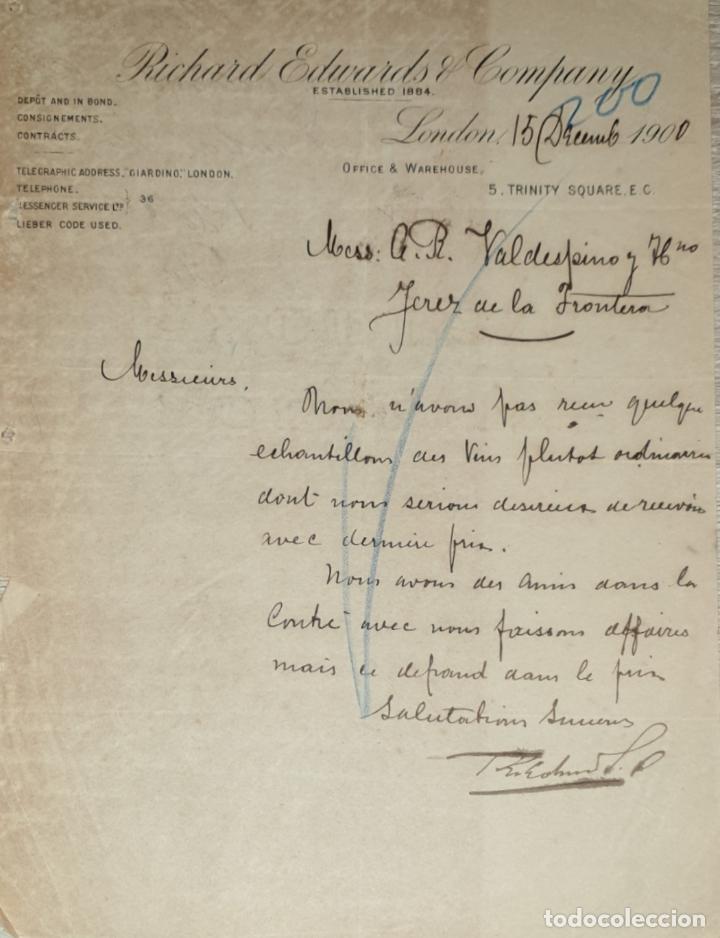 Richard Edwards & Company
ESTABLISHED 1884.
200
DEPÔT AND IN BOND.
CONSIGNEMENTS.
CONTRACTS.
London, 15 Decemb 1900
OFFICE & WAREHOUSE,
5, TRINITY SQUARE, E.C.
TELEGRAPHIC ADDRESS, "GIARDINO," LONDON.
TELEPHONE
MESSENGER SERVICE LTD } 36
LIEBER CODE USED.
Mess: A. R. Valdespino y Hno
Jerez de la Frontera
Messieurs,
Nous n'avons pas reçu quelque
echantillons des Vins plutot ordinaires
dont nous serions desireux de recevoir
avec derniere prix.
Nous avons des amis dans la
Contré avec nous faissons affaires
mais ce depand dans le prix
Salutations Sinceres